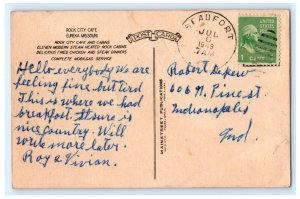 ROCK CITY CAFE
EUREKA MISSOURI
ROCK CITY CAFE AND CABINS
ELEVEN MODERN STEAM HEATED ROCK CABINS
DELICIOUS FRIED CHICKEN AND STEAK DINNERS
COMPLETE MOBILGAS SERVICE
Hello everybody we are
feeling fine but tired
This is where we had
breakfast. It sure is
nice country. Will
write more later.
Roy & Vivian.
POST CARD
BEAUFORT
JUL
6
1949
MAINSTREET PUBLICATIONS
1 CENT
Robert
606 N. Pine st
Indianapolis
Ind.